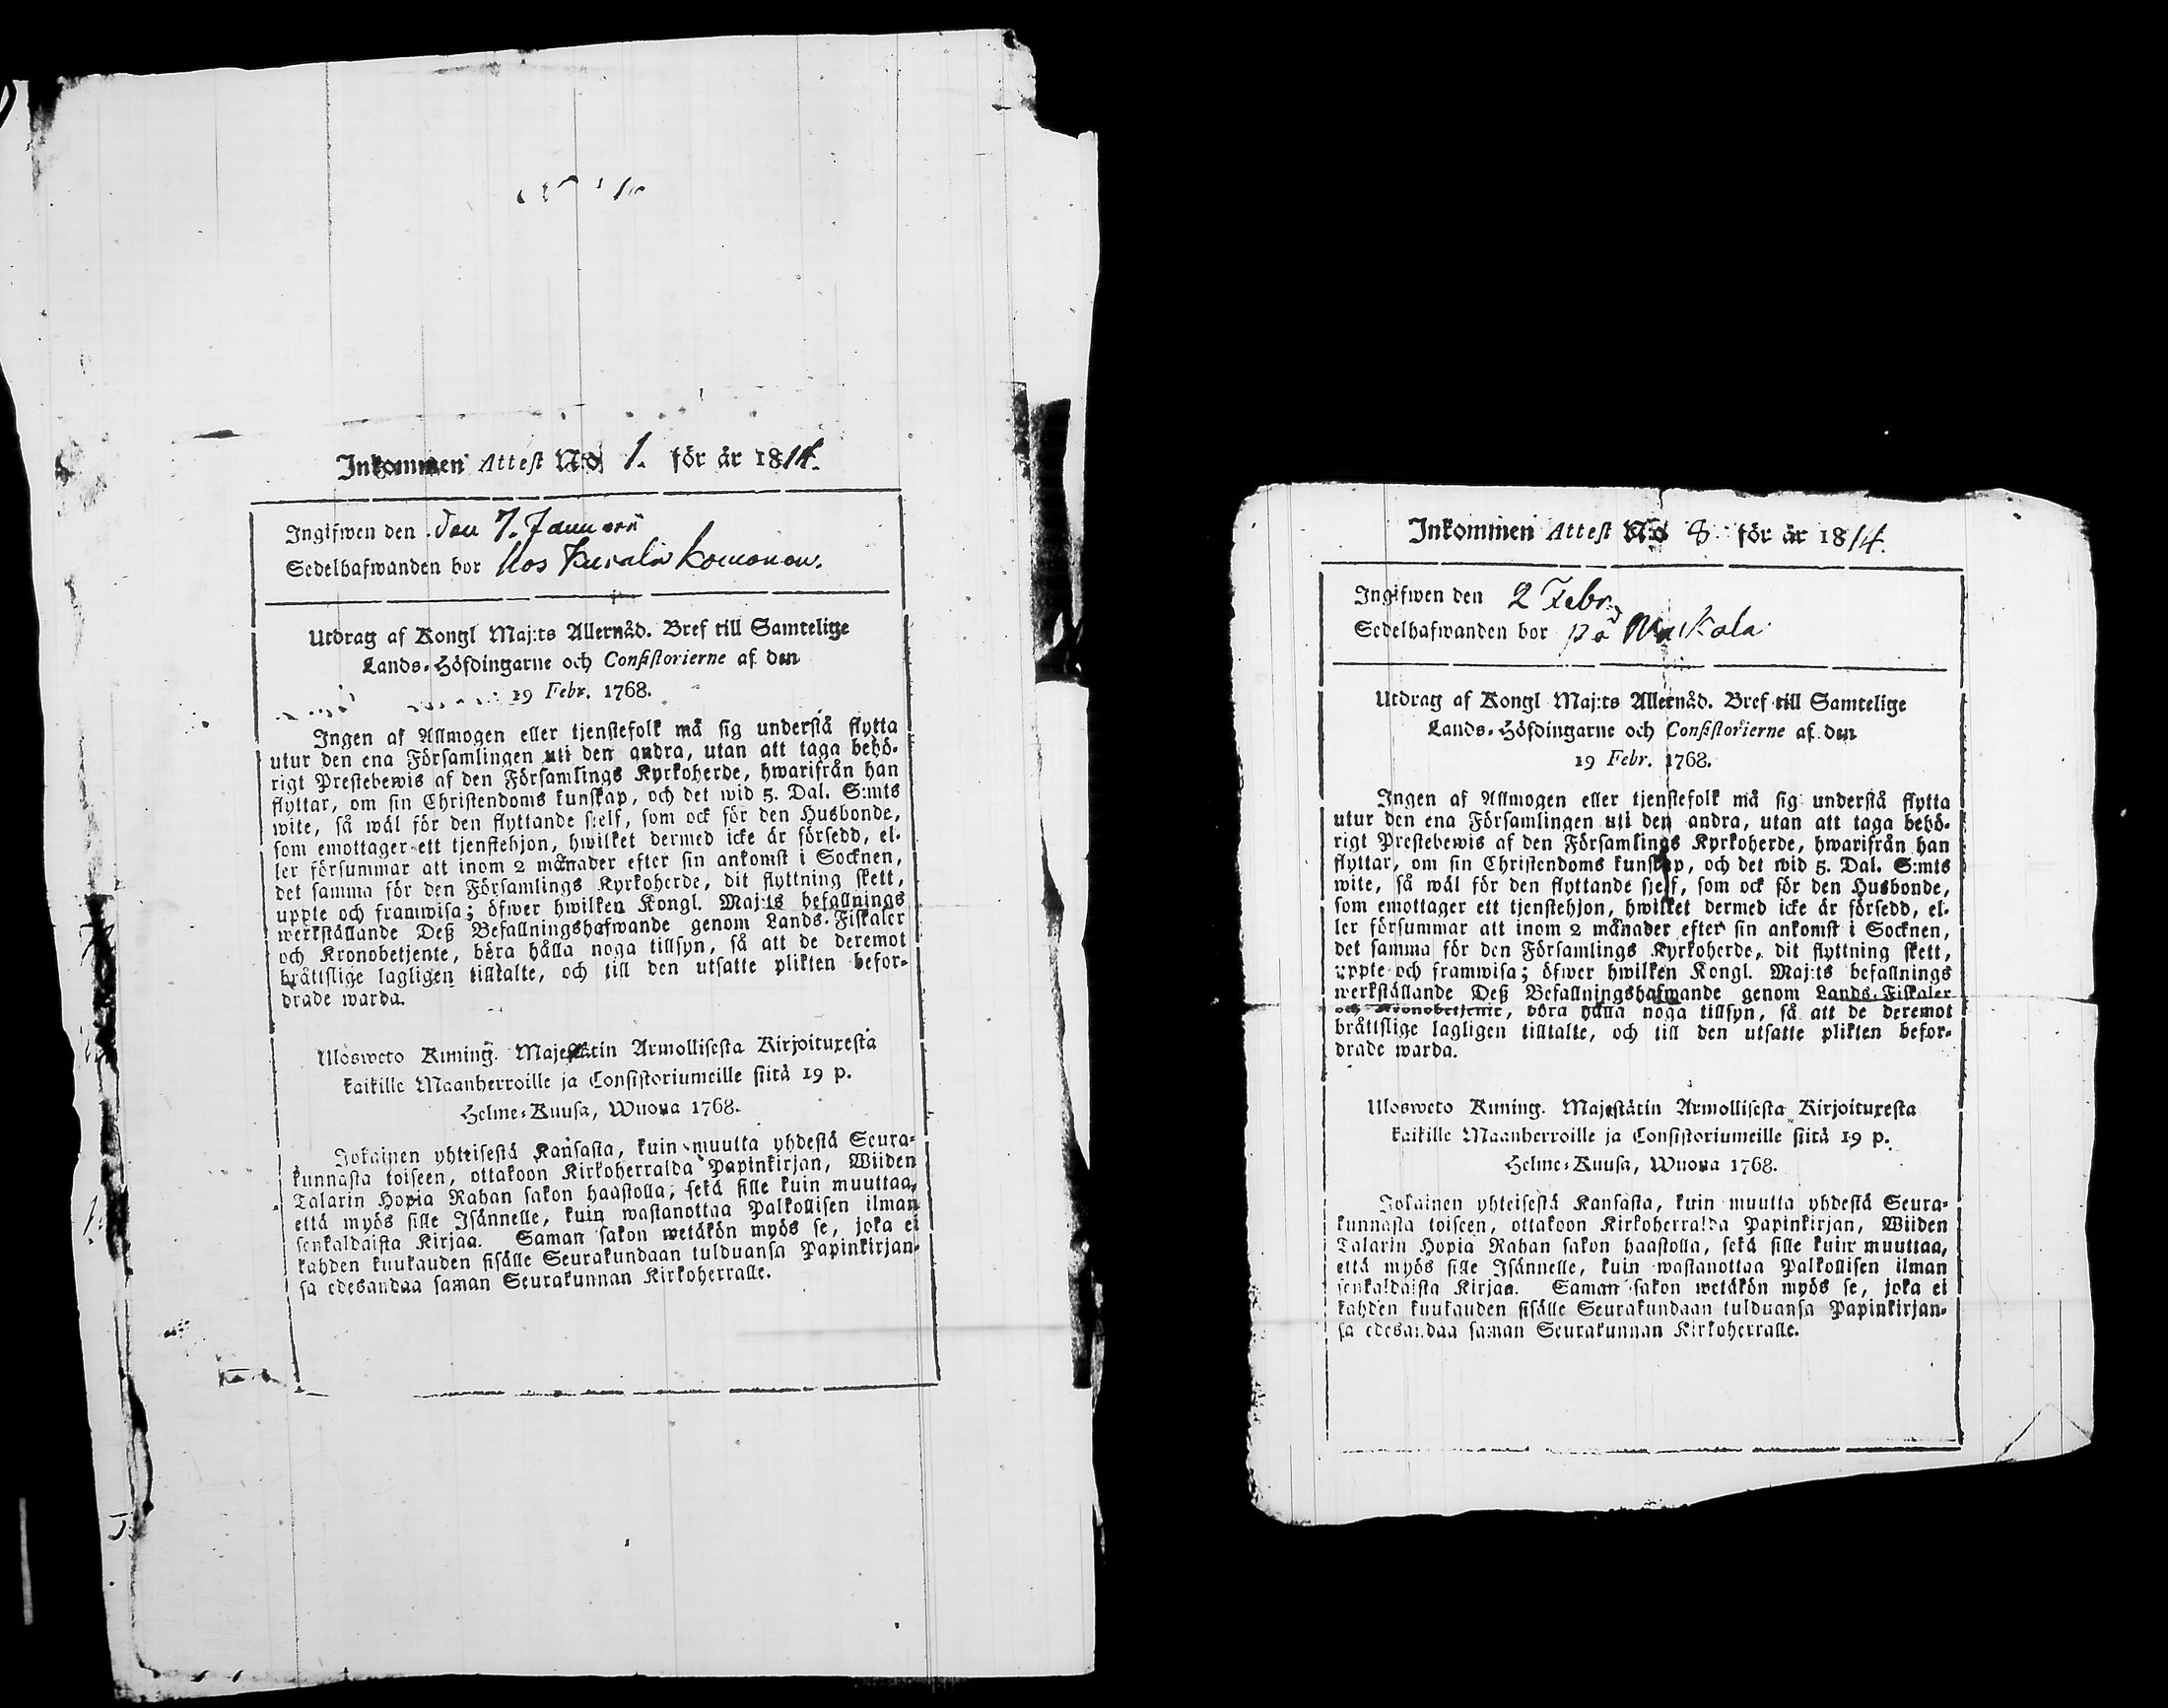 Inkommen Attest N:o 1. för år 1814.
Ingifwen den den 7. Januarii
Sedelhafwanden bor hos
Utdrag af Kongl Maj:ts Allernåd. Bref till Samtelige
Lands-Höfdingarne och Consistorierne af den
19 Febr. 1768.
Ingen af Allmogen eller tjenstefolk må sig understå flytta
utur den ena Församlingen uti den andra, utan att taga behö-
rigt Prestebewis af den Församlings Kyrkoherde, hwarifrån han
flyttar, om sin Christendoms kunskap, och det wid 5. Dal. S:mts
wite, så wäl för den flyttande sjelf, som ock för den Husbonde,
som emottager ett tjenstehjon, hwilket dermed icke är försedd, el-
ler försummar att inom 2 månader efter sin ankomst i Socknen,
det samma för den Församlings Kyrkoherde, dit flyttning skett,
uppte och framwisa; öfwer hwilken Kongl. Maj:ts befallnings
werkställande Deß Befallningshafwande genom Lands-Fiskaler
och Kronobetjente, böra hålla noga tillsyn, så att de deremot
bråttslige lagligen tilltalte, och till den utsatte plikten befor-
drade warda.
Ulosweto Kuning. Majestätin Armollisesta Kirjoituxesta
kaikille Maanherroille ja Consistoriumeille siitä 19 p.
Helme-Kuusa, Wuona 1768.
Jokainen yhteisestä Kansasta, kuin muutta yhdestä Seura-
kunnasta toiseen, ottakoon Kirkoherralda Papinkirjan, Wiiden
Talarin Hopia Rahan sakon haastolla, sekä sille kuin muuttaa,
että myös sille Isännelle, kuin wastanottaa Palkollisen ilman
senkaldaista Kirjaa. Saman sakon wetäkön myös se, joka ei
kahden kuukauden sisälle Seurakundaan tulduansa Papinkirjan-
sa edesandaa saman Seurakunnan Kirkoherralle.
Inkommen Attest N:o 8. för år 1814.
Ingifwen den 2 Febr.
Sedelhafwanden bor på
Utdrag af Kongl Maj:ts Allernåd. Bref till Samtelige
Lands-Höfdingarne och Consistorierne af den
19 Febr. 1768.
Ingen af Allmogen eller tjenstefolk må sig understå flytta
utur den ena Församlingen uti den andra, utan att taga behö-
rigt Prestebewis af den Församlings Kyrkoherde, hwarifrån han
flyttar, om sin Christendoms kunskap, och det wid 5. Dal. S:mts
wite, så wäl för den flyttande sjelf, som ock för den Husbonde,
som emottager ett tjenstehjon, hwilket dermed icke är försedd, el-
ler försummar att inom 2 månader efter sin ankomst i Socknen,
det samma för den Församlings Kyrkoherde, dit flyttning skett,
uppte och framwisa; öfwer hwilken Kongl. Maj:ts befallnings
werkställande Deß Befallningshafwande genom Lands-Fiskaler
och Kronobetjente, böra hålla noga tillsyn, så att de deremot
bråttslige lagligen tilltalte, och till den utsatte plikten befor-
drade warda.
Ulosweto Kuning. Majestätin Armollisesta Kirjoituxesta
kaikille Maanherroille ja Consistoriumeille siitä 19 p.
Helme-Kuusa, Wuona 1768.
Jokainen yhteisestä Kansasta, kuin muutta yhdestä Seura-
kunnasta toiseen, ottakoon Kirkoherralda Papinkirjan, Wiiden
Talarin Hopia Rahan sakon haastolla, sekä sille kuin muuttaa,
että myös sille Isännelle, kuin wastanottaa Palkollisen ilman
senkaldaista Kirjaa. Saman sakon wetäkön myös se, joka ei
kahden kuukauden sisälle Seurakundaan tulduansa Papinkirjan-
sa edesandaa saman Seurakunnan Kirkoherralle.